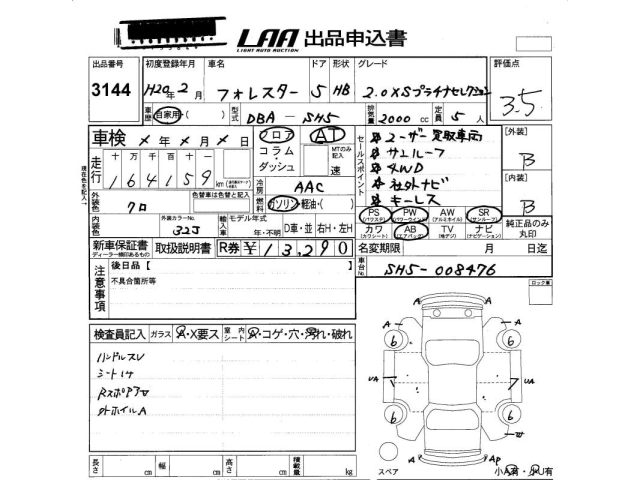 LAA 出品申込書
LIGHT AUTO AUCTION
出品番号 初度登録年月 車名 ドア 形状 グレード 評価点
3144 H20年2月 フォレスター 5 HB 2.0XSプラチナセレクション 3.5
車歴 自家用・( ) 型式 DBA-SH5 排気量 2000 cc 定員 5 人
車検 メ年メ月メ日 フロア AT セールスポイント ユーザー買取車両 [外装]
コラム・ダッシュ MTのみ記入 速 サンルーフ B
走行 十万千百十一 4WD
164159 km 冷房 AAC 社外ナビ [内装]
現在色を記入 外装色 クロ 色替車は色替と記入 燃料 ガソリン・軽油・( ) キーレス B
内装色 外装カラーNo. 32J 輸入車 モデル年式 年・不明 D車・並 右H・左H
PS (パワステ) PW (パワーウインド) AW (アルミホイル) SR (サンルーフ) 純正品のみ
カワ (カワシート) AB (エアバッグ) TV (地デジ) ナビ (ナビゲーション) 丸印
新車保証書 取扱説明書 R券 ¥13,290 名変期限 月 日迄
ディーラー様印あるもの
車台No SH5-008476
注意事項 後日品【 】
不具合箇所等
ロック車
検査員記入 ガラス A・X要ス 室内シート A・コゲ・穴・汚れ・破れ
ハンドルスレ
A A
6 6
UA UA
外ホイルA
6 6
W
A Ap
長さ cm 幅 cm 高さ cm 積載量 kg スペア 小A有・小U有